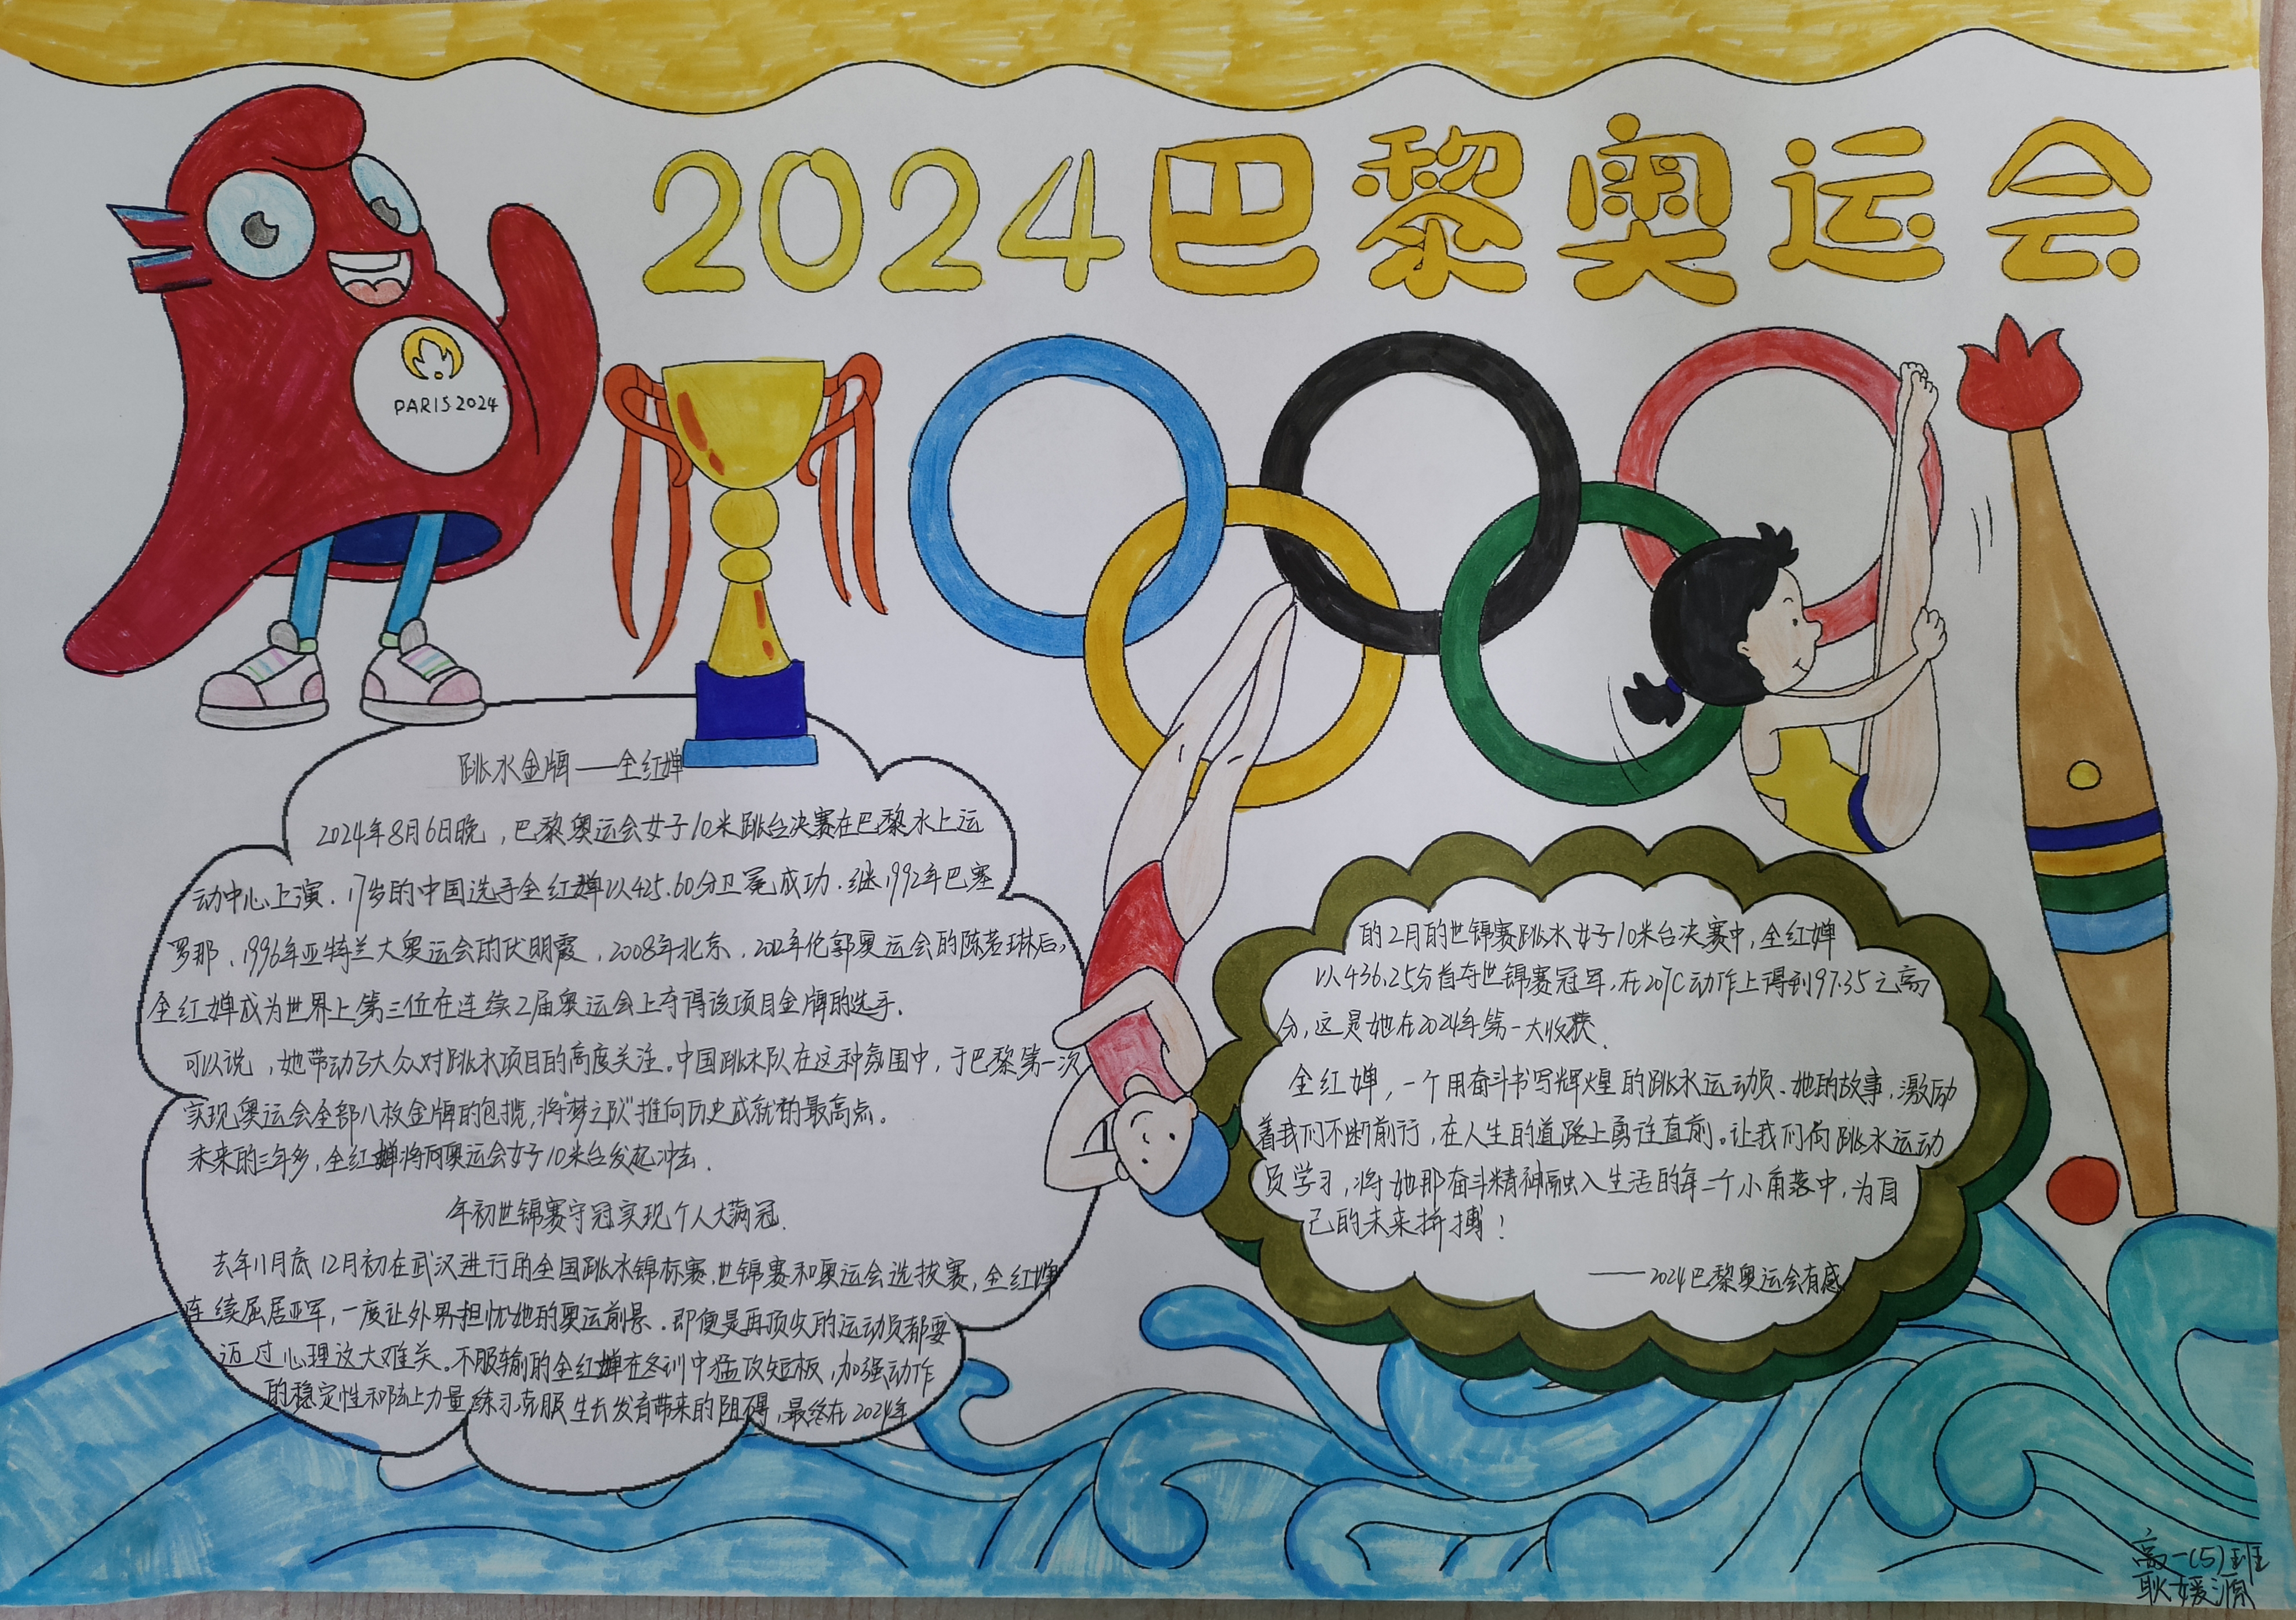 2024巴黎奥运会
PARIS 2024
跳水金牌——全红婵
2024年8月6日晚，巴黎奥运会女子10米跳台决赛在巴黎水上运
动中心上演。17岁的中国选手全红婵以425.60分卫冕成功。继1992年巴塞
罗那、1996年亚特兰大奥运会的伏明霞、2008年北京、2012年伦郭奥运会的陈若琳后，
全红婵成为世界上第三位在连续2届奥运会上夺得该项目金牌的选手.
可以说，她带动了大众对跳水项目的高度关注。中国跳水队在这种氛围中，于巴黎第一次
实现奥运会全部八枚金牌的包揽，将“梦之队”推向历史成就的最高点。
未来的三年多，全红婵将向奥运会女子10米台发起冲击.
年初世锦赛夺冠实现个人大满冠.
去年11月底12月初在武汉进行的全国跳水锦标赛、世锦赛和奥运会选拔赛，全红婵
连续屈居亚军，一度让外界担忧她的奥运前景.即便是再顶尖的运动员都要
迈过心理这大难关。不服输的全红婵在冬训中猛攻短板，加强动作
的稳定性和陆上力量练习克服生长发育带来的阻碍，最终在2024年
的2月的世锦赛跳水女子10米台决赛中，全红婵
以436.25分首夺世锦赛冠军，在207C动作上得到97.35之高
分，这是她在2024年第一大收获.
全红婵，一个用奋斗书写辉煌的跳水运动员、她的故事，激励
着我们不断前行，在人生的道路上勇往直前。让我们向跳水运动
员学习，将她那奋斗精神融入生活的每一个小角落中，为自
己的未来拼搏！
——2024巴黎奥运会有感
高一（5）班
耿媛源